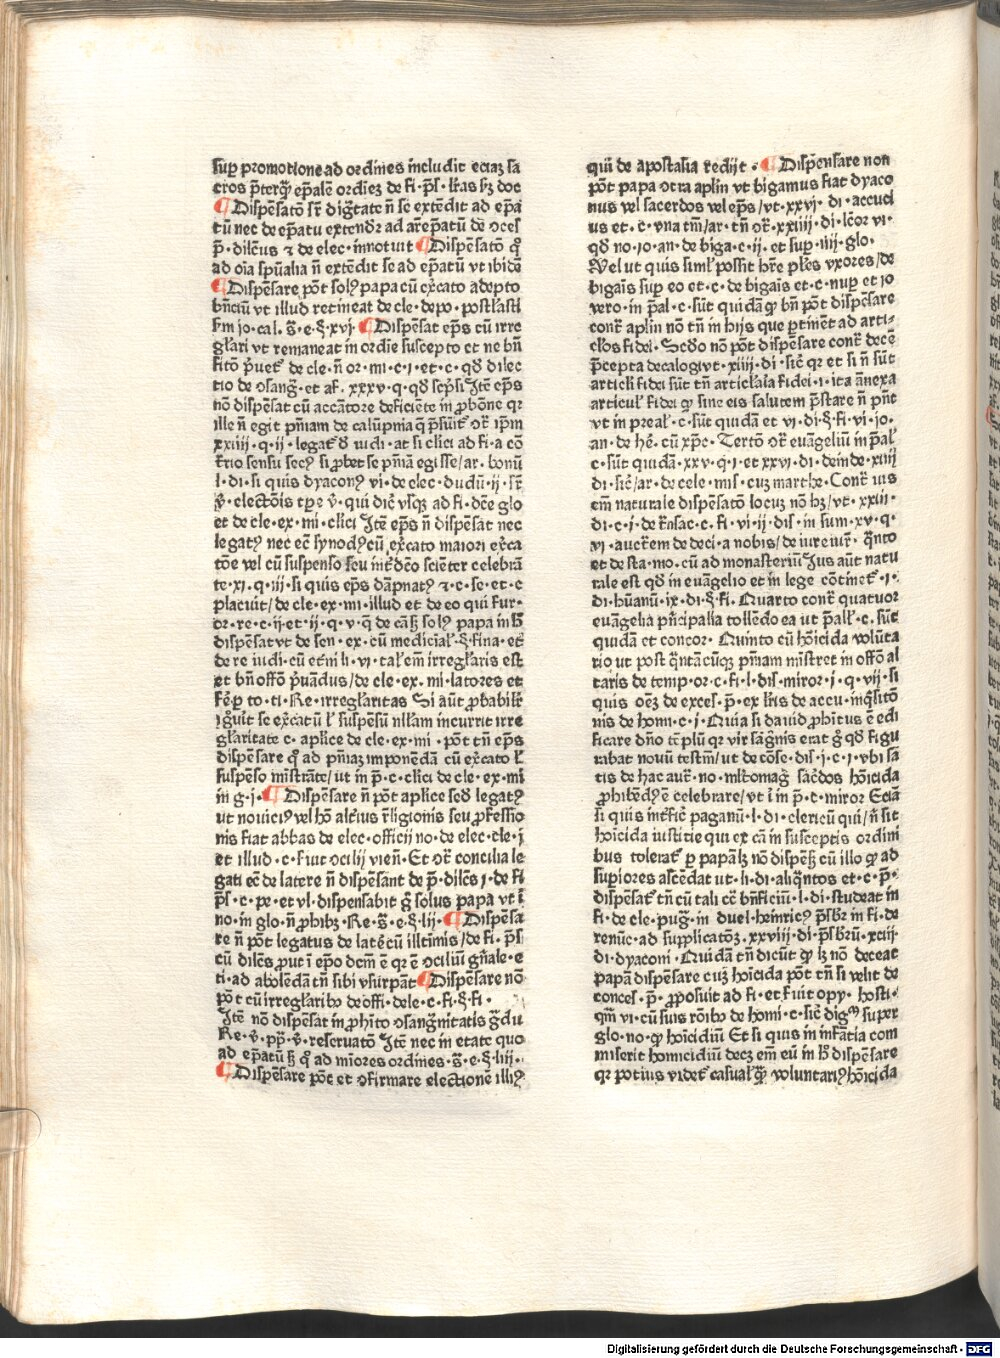 sup̱ promotione ad ordines includit eciaꝫ sa
cros p̄terq̄ʒ ep̄alē ordieꝫ de fi·p̄s·lr̄as sꝫ doc
¶ Dispēsatō sr̄ diḡtate n̄ se extēdit ad ep̄a
tū nec de ep̄atu extendr̄ ad ar̄ep̄atū de oces
p̄·dilc̄us ⁊ de elec·innotuit ¶ Dispēsatō q̄
ad oīa spūalia n̄ extēdit se ad ep̄atū vt ibidē
¶ Dispēsare pōt solꝰ papa cū exc̄ato adepto
bn̄ciū vt illud retineat de cle·depo·postlasti
s̄m jo·cal·s̄·e·§·xvj· ¶ Dispēsat ep̄s cū irre
gl̄ari vt remaneat in ordīe suscepto et ne bn̄
ficō p̄uet̄ de cle·n̄ or·mi·c·i·et·c·qd̄ dilec
tio de ↄsanḡ·et af·xxxv·q·qd̄ scp̄si Itē ep̄s
nō dispēsat cū accātore deficiēte in ꝓbōne qr
ille n̄ egit pn̄iam de calūpnia q̄ p̄suit̄ ↄr̄ ip̄m
xxiiii·q·ii·legat̄ ꝺ iudi·at si clici ad fi·a cō
tr̄rio sensu secꝰ si ꝓbet se pn̄iā egisse/ar·bonū
l·di·si quis dyaconꝰ vi·de elec·dudū·ii·sr̄
v̄·electōis tp̱e v̄·qui dic̄ vsqꝫ ad fi·dc̄e glo
et de cle·ex·mi·clici Itē ep̄s n̄ dispēsat nec
legatꝰ nec ec̄ synodꝰ cū exc̄ato maiori exc̄a
tōe vel cū suspenso seu int̄dc̄o sciēter celebrā
te·xi·q·iii·si quis ep̄s dāpnatꝰ ⁊·c·se·et·c
placuit/de cle·ex·mi·illud et de eo qui fur·
or·re·c·ij·et·ii·q·v·q̄ de cāß solꝰ papa in ħ
dispēsat vt de sen·ex·cū medicial̄·§·fina·et
de re iudi·cū etni li·vi·tal̄ em̄ irregl̄aris est
et bn̄ offō p̄uādus/de cle·ex·mi·latores et
fē·p̱ to·ti·Re·irregl̄aritas Si aūt ꝓbabilr̄
igūit se exc̄atū l̄ suspēsū nl̄lam incurrit irre
gl̄aritatē c·aplice de cle·ex·mi·pōt tn̄ ep̄s
dispēsare q̄ ad pn̄iaꝫ imponēdā cū exc̄ato l̄
suspēso mīstrāte/ut in p̄·c·clici de cle·ex·mi
in g·j· ¶ Dispēsare n̄ pōt aplice sed legatꝰ
ut nouiciꝰ vel hō altius r̄ligionis seu ꝓfessio
nis fiat abbas de elec·officij no·de elec·cle·j
et illud·c·fuit ↄcilij vien̄·Et ↄr̄ concilia le
gati ec̄ de latere n̄ dispēsant de p̄·dilc̄s j·de fi
p̄s·c·pe·et vl·dispensabit g̱ solus papa vt i
no·in glo·n̄ ꝓhibꝫ·Re·s̄·e·§·lii· ¶ Dispēsa
re n̄ pōt legatus de latē cū illt̄imis/de fi·p̄s
cū dilc̄s ꝓut i ep̄o dcm̄ ē qr ē ↄciliū gn̄ale·e
ti·ad abolēdā tn̄ sibi vsurpāt ¶ Dispēsare nō
pōt cū irregl̄aribꝰ de offi·dele·c·fi·§·fi·
Itē nō dispēsat in ꝓhīto ↄsanḡnitatis g̱du
Re·v̄·pp̄·v̄·reseruatō Itē nec in etate quo
ad ep̄atū ß q̄ ad mīores ordines·s̄·e·§·liij·
¶ Dispēsare pōt et ↄfirmare electionē illiꝰ
quī de apostasia redijt· ¶ Dispēnsare non
pōt papa ↄtra aplin vt bigamus fiat dyaco
nus vel sacerdos vel ep̄s/vt·xxvi·di·accuci
us et·c·vna tm̄/ar·tn̄ ↄr̄·xxiiii·di·lc̄or vi·
qd̄ no·jo·an·de biga·c·ii·et sup·iiij·glo·
Vel ut quis siml̄ possit hr̄e pl̄es vxores/de
bigaīs sup̱ eo et·c·de bigaīs et·c·nup̱ et jo
vero·in p̄al·c·sūt quidā q̄ bn̄ pōt dispēsare
contr̄ aplin nō tn̄ in hijs que p̱tinēt ad arti·
cl̄os fidei·Scd̄o nō pōt dispēsare contr̄ decē
p̄cepta decalogi vt·xiiii·di·sic̄ qr et si n̄ sūt
articli fidei sūt tn̄ articl̄aīa fidei·i·ita ānexa
articul̄ fidei q̱ sine eis salutem p̄stare n̄ pn̄t
vt in preal̄·c·sūt quidā et vi·di·§·fi·vi·jo·
an·de hē·cū xp̄c·Tertō ↄr̄ euāgeliū in p̄al̄
c·sūt quidā·xxv·q·i·et xxvi·di·deinde·xiiii
di·sic̄/ar·de cele·mis·cuꝫ marthe·Contr̄ ius
em̄ naturale dispēsatō locuꝫ nō hꝫ/vt·xxiii·
di·c·j·de r̄nsac·c·fi·vi·ij·dis·in sum·xv·q·
vi·auctr̄em de deci·a nobis/de iureiur̄·q̄nto
et de sta·mo·cū ad monasteriū Jus aūt natu
rale est qd̄ in euāgelio et in lege cōtinet̄·i·
di·hūanū·ix·di·§·fi·Quarto contr̄ quatuor
euāgelia p̄ncipalia tollēdo ea ut p̄all̄·c·sūt
quidā et concor·Quinto cū hōicida volūta
rio ut post q̄ntācūqꝫ pn̄iam mīstret in offō al
taris de temp·or·c·fi·l·dis·miror·j·q·vij·si
quis oēꝫ de exces·p̄·ex lr̄is de accu·inq̄sitō
nis de homi·c·j·Quia si dauid ꝓhītus ē edi
ficare dn̄o tēplū qr vir sāg̱nis erat g̱ qd̄ figu
rabat nouū testm̄/ut de cōse·dis·j·c·i·vbi sa
tis de hac aut̄·no·ml̄tomag̱ sac̄dos hōicida
ꝓhibēdꝰ ē celebrare/vt i in p̄·c·miror Eciā
si quis int̄ficc̄ paganū·l·di·clericū qui/n̄ sit
hōicida iusticie qui ex cā in susceptis ordini
bus tolerat̄ p̱ papā lꝫ nō dispēß cū illo q̱ ad
sup̱iores ascēdat ut·li·di·aliq̄ntos et·c·p̄·
dispēsat̄ tn̄ cū tali cr̄ bn̄ficiū·l·di·studeat in
fi·de cle·puḡ·in duel·heinricꝰ p̄sbr̄ in fi·de
renūc·ad supplicatōꝫ·xxviii·di·p̄sbr̄ū·xciij·
di·dyaconi·Quidā tn̄ dicūt q̱ lꝫ nō deceat
papam dispēsare cuꝫ hōicida pōt tn̄ si velit de
conces·p̄·ꝓposuit ad fi·et fuit opy·hosti·
qm̄ vi·cū suis rōibꝰ de homi·c·sic̄ dig̱m super
glo·no·q̱ hōicidiū Et si quis in infātia com
miserit homicidiū decꝫ em̄ eū in ħ dispēsare
qr potius videt̄ casual̄ q̄ʒ voluntariꝰ hōicida
Digitalisierung gefördert durch die Deutsche Forschungsgemeinschaft - DFG